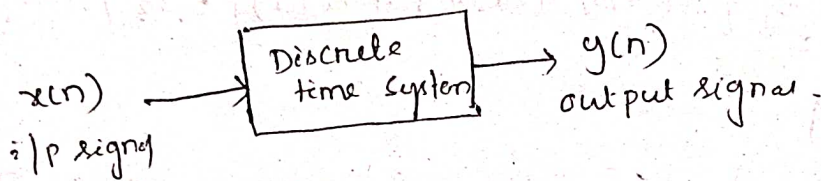 x(n)
i/p signal
Discrete
time system
y(n)
output signal.